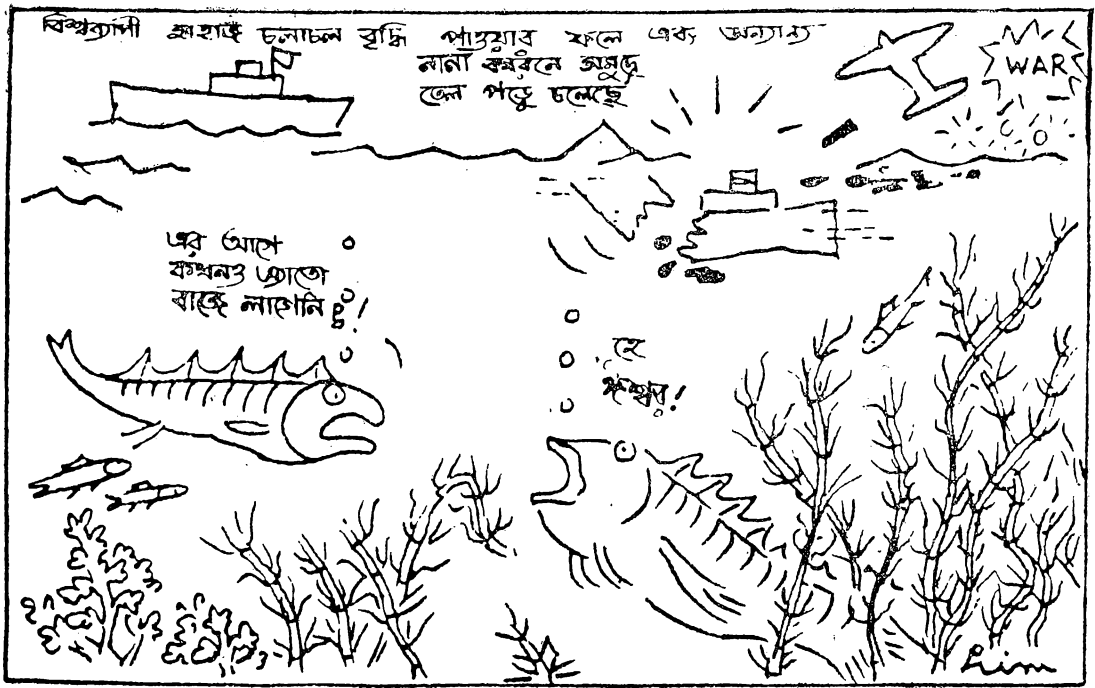 বিশ্বব্যাপী জাহাজ চলাচল বৃদ্ধি পাওয়ার ফলে এবং অন্যান্য
নানা কারনে সমুদ্রে
তেল পড়ে চলেছে
WAR
এর আগে
কখনও এ্যাতো
বাজে লাগেনি হুঁ!
হে
ঈশ্বর!
Lim